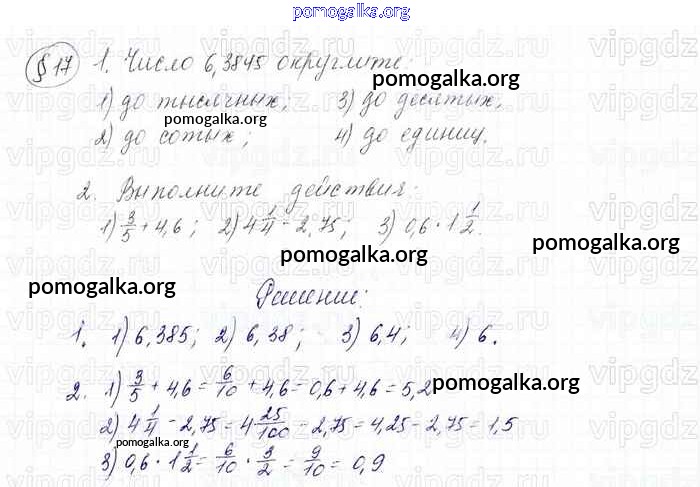 pomogalka.org
§ 17 1. Число 6,3845 округлите:
pomogalka.org
1) до тысячных; 3) до десятых;
pomogalka.org
2) до сотых; 4) до единиц.
2. Выполните действия:
1) 3/5 + 4,6; 2) 4 1/4 - 2,75; 3) 0,6 · 1 1/2.
pomogalka.org pomogalka.org
pomogalka.org
Решение:
1. 1) 6,385; 2) 6,38; 3) 6,4; 4) 6.
2. 1) 3/5 + 4,6 = 6/10 + 4,6 = 0,6 + 4,6 = 5,2
pomogalka.org
2) 4 1/4 - 2,75 = 4 25/100 - 2,75 = 4,25 - 2,75 = 1,5
pomogalka.org
3) 0,6 · 1 1/2 = 6/10 · 3/2 = 9/10 = 0,9